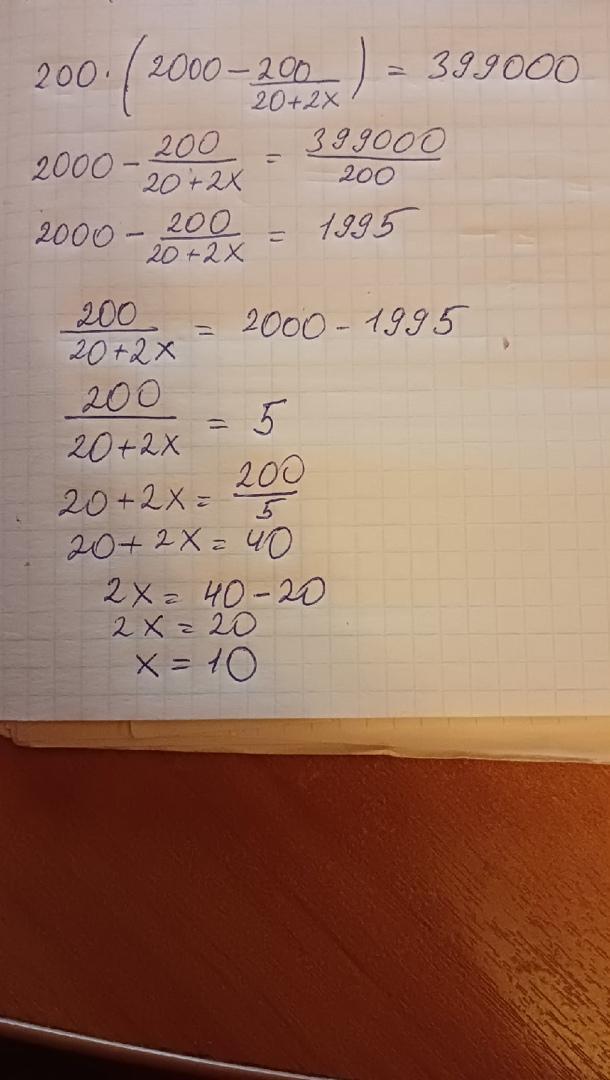 200·(2000-200/(20+2x))=399000
2000-200/(20+2x)=399000/200
2000-200/(20+2x)=1995
200/(20+2x)=2000-1995
200/(20+2x)=5
20+2x=200/5
20+2x=40
2x=40-20
2x=20
x=10